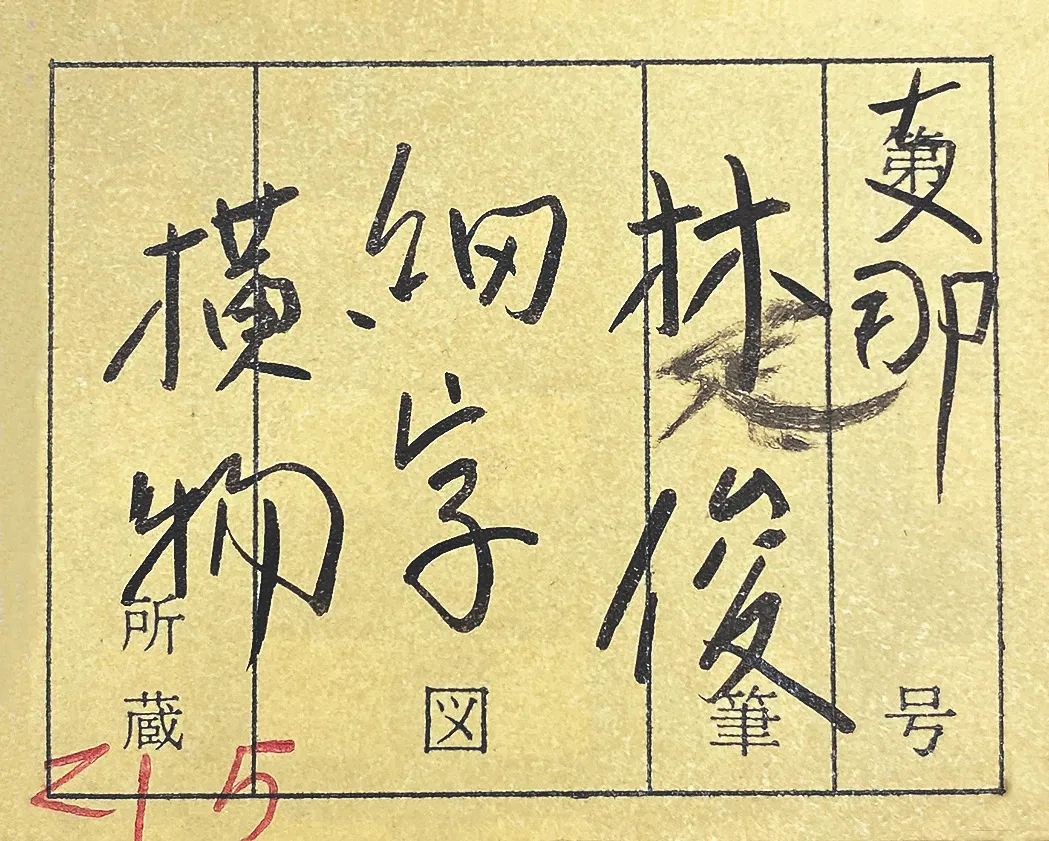 第支那号
林俊筆
細字図
横物所蔵
215